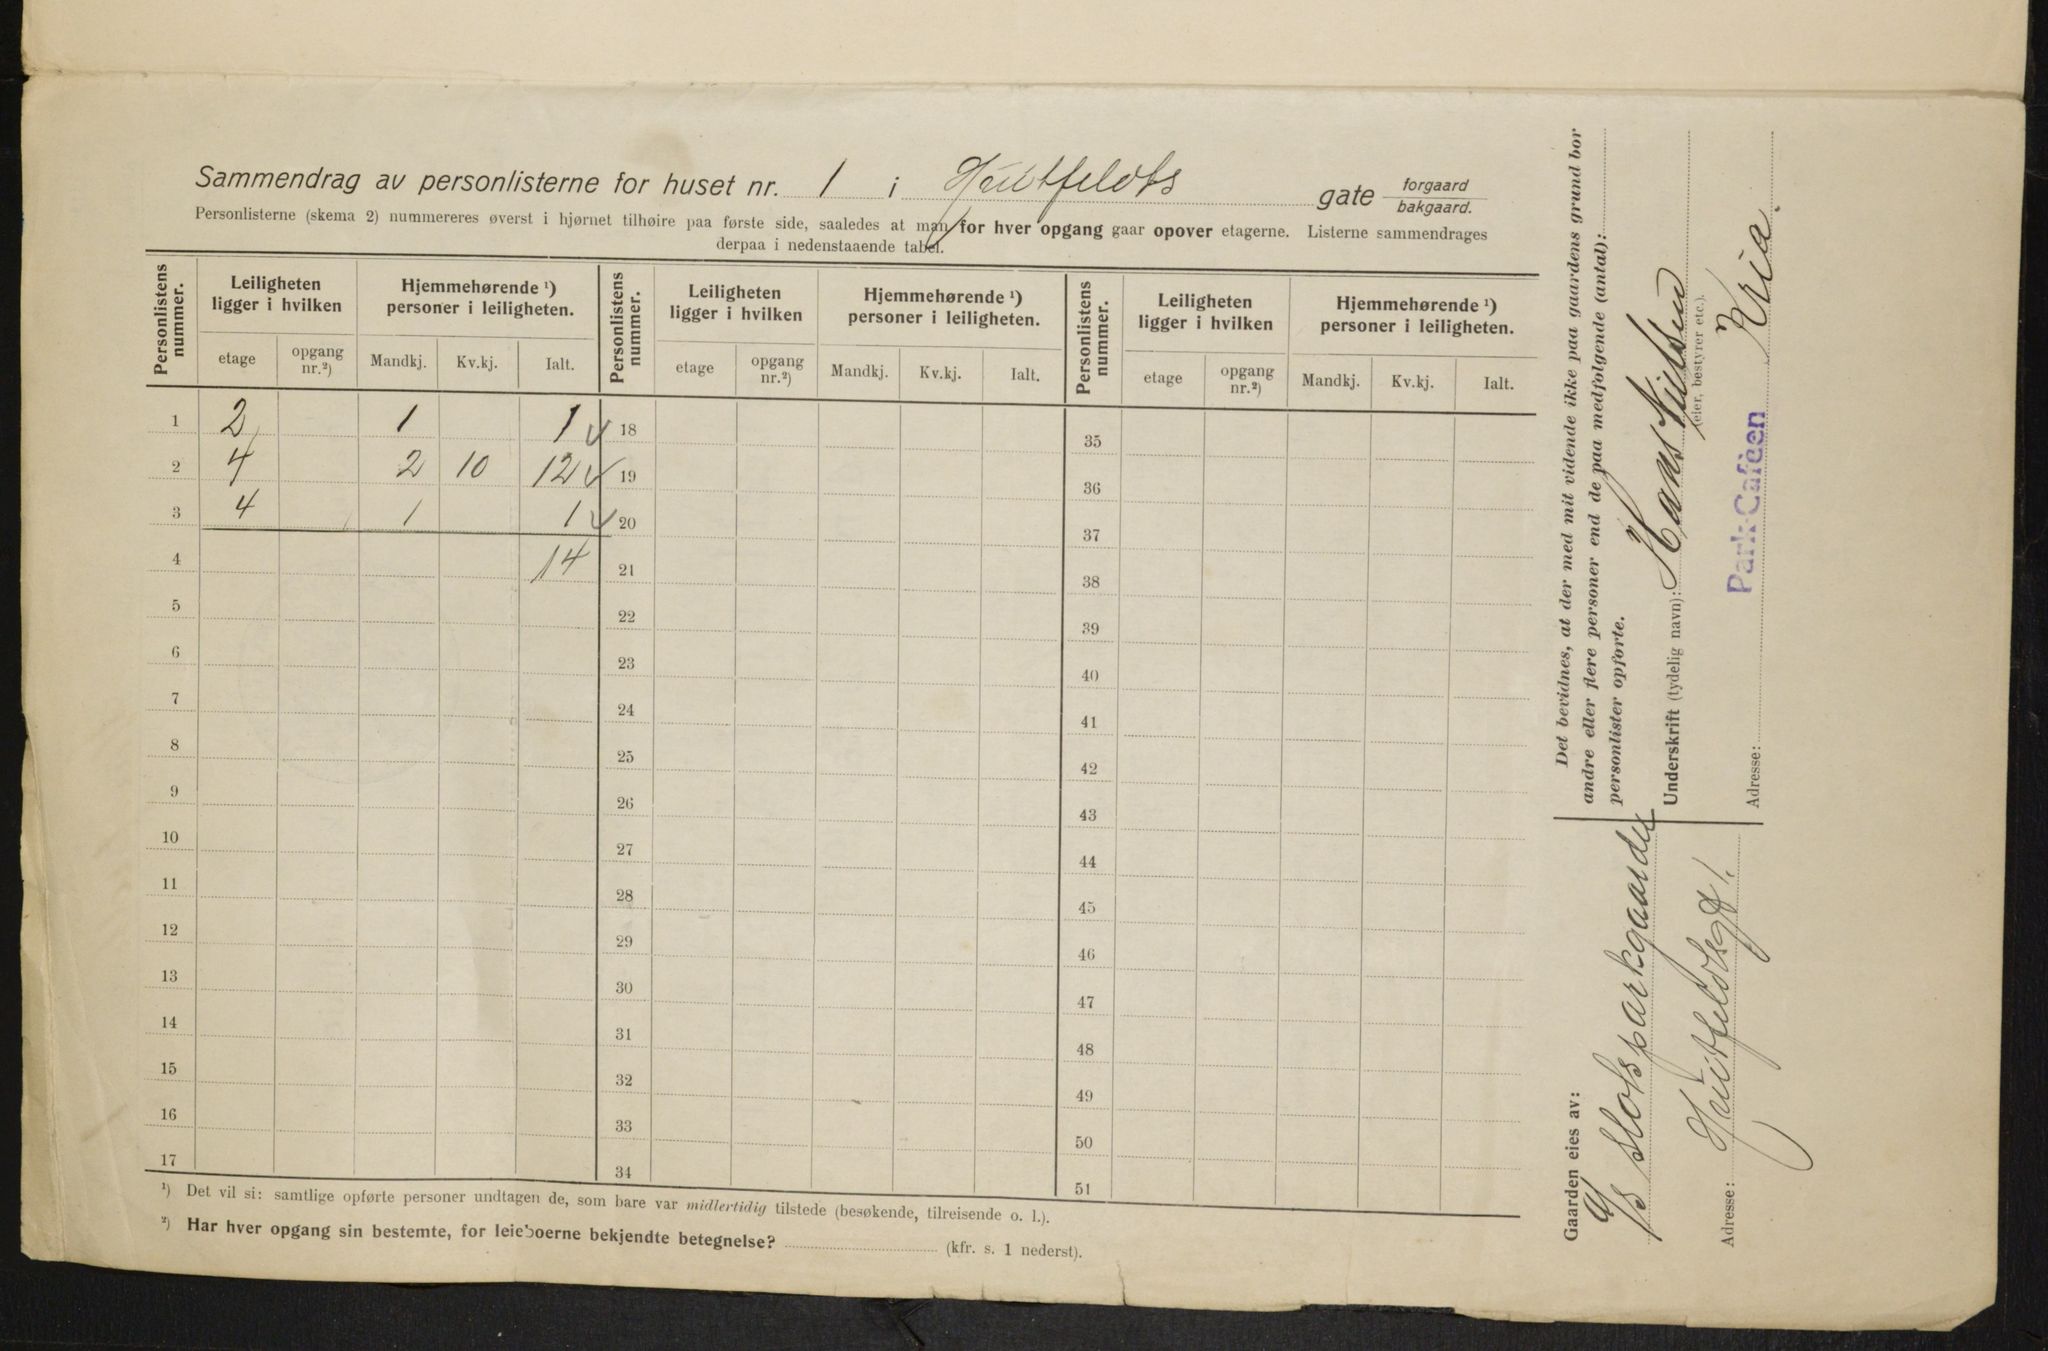 Sammendrag av personlisterne for huset nr. 1 i Huitfeldts gate forgaard
bakgaard.
Personlisterne (skema 2) nummereres øverst i hjørnet tilhøire paa første side, saaledes at man for hver opgang gaar opover etagerne. Listerne sammendrages
derpaa i nedenstaaende tabel.
Personlistens nummer. Leiligheten ligger i hvilken Hjemmehørende ¹) personer i leiligheten. Personlistens nummer. Leiligheten ligger i hvilken Hjemmehørende ¹) personer i leiligheten. Personlistens nummer. Leiligheten ligger i hvilken Hjemmehørende ¹) personer i leiligheten.
etage opgang nr.²) Mandkj. Kv.kj. Ialt. etage opgang nr.²) Mandkj. Kv.kj. Ialt. etage opgang nr.²) Mandkj. Kv.kj. Ialt.
1 2 1 1 18 35
2 4 2 10 12 19 36
3 4 1 1 20 37
4 14 21 38
5 22 39
6 23 40
7 24 41
8 25 42
9 26 43
10 27 44
11 28 45
12 29 46
13 30 47
14 31 48
15 32 49
16 33 50
17 34 51
¹) Det vil si: samtlige opførte personer undtagen de, som bare var midlertidig tilstede (besøkende, tilreisende o. l.).
²) Har hver opgang sin bestemte, for leieboerne bekjendte betegnelse? (kfr. s. 1 nederst).
Det bevidnes, at der med mit vidende ikke paa gaardens grund bor
andre eller flere personer end de paa medfolgende (antal):
personlister opforte.
Underskrift (tydelig navn): Hans Nilssen
(eier, bestyrer etc.).
Adresse: Park-Caféen Kria.
Gaarden eies av:
A/S Slotsparkgaarden
Adresse: Huitfeldtsgt 1.